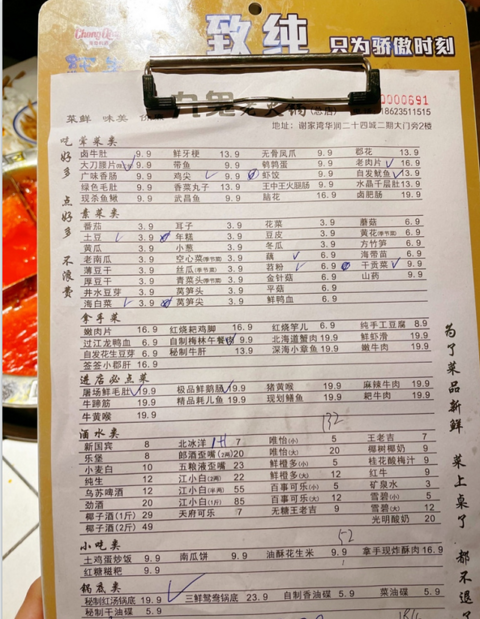 致纯 只为骄傲时刻
0000691
菜鲜 味美
18623511515
地址：谢家湾华润二十四城二期大门旁2楼
吃好多 点好多 不浪费
荤菜类
卤牛肚 9.9 鲜牙梗 13.9 无骨凤爪 9.9 郡花 13.9
大刀腰片 9.9 带鱼 9.9 鹌鹑蛋 9.9 老肉片 16.9
广味香肠 9.9 鸡尖 9.9 虾饺 9.9 自发鱿鱼 13.9
绿色毛肚 9.9 香菜丸子 13.9 王中王火腿肠 9.9 水晶千层肚 13.9
现杀鱼鳅 9.9 武昌鱼 9.9 脑花 16.9 卤肥肠 19.9
素菜类
番茄 3.9 耳子 3.9 花菜 3.9 蘑菇 6.9
土豆 3.9 年糕 3.9 豆皮 3.9 黄花(季节菜) 6.9
黄瓜 3.9 小葱 3.9 冬瓜 3.9 方竹笋 6.9
老南瓜 3.9 空心菜(季节菜) 3.9 藕 6.9 海带苗 6.9
薄豆干 3.9 丝瓜(季节菜) 3.9 苕粉 6.9 干贡菜 9.9
厚豆干 3.9 青菜头(季节菜) 3.9 金针菇 6.9 山药 9.9
井水豆芽 3.9 莴笋头 3.9 平菇 6.9
海白菜 3.9 莴笋尖 3.9 鲜鸭血 6.9
拿手菜
嫩肉片 16.9 红烧耙鸡脚 16.9 红烧芋儿 6.9 纯手工豆腐 8.9
过江龙鸭血 6.9 自制梅林午餐肉 19.9 北海道蟹肉 19.9 鲜虾滑 19.9
自发花生豆芽 6.9 秘制牛肝 13.9 深海小章鱼 19.9 嫩牛肉 19.9
签签小郡肝 16.9
进店必点菜
屠场鲜毛肚 19.9 极品鲜鹅肠 19.9 猪黄喉 19.9 麻辣牛肉 19.9
牛蹄筋 19.9 精品耗儿鱼 19.9 现划鳝鱼 19.9 耙牛肉 19.9
牛黄喉 19.9
132
酒水类
新国宾 8 北冰洋 7 唯怡(小) 5 王老吉 7
乐堡 8 郎酒歪嘴(2两) 20 唯怡(大) 20 椰树椰奶 9
小麦白 10 五粮液歪嘴 23 鲜橙多(小) 5 桂花酸梅汁 9
纯生 12 江小白(2两) 22 鲜橙多(大) 12 红牛 9
乌苏啤酒 12 江小白(半斤) 55 百事可乐(小) 5 矿泉水 3
劲酒 20 江小白(1斤) 85 百事可乐(大) 12 雪碧(小) 5
椰子酒(1斤) 29 天府可乐 7 无糖王老吉 9 雪碧(大) 12
椰子酒(2斤) 49 光明酸奶 20
52
小吃类
土鸡蛋炒饭 9.9 南瓜饼 9.9 油酥花生米 9.9 拿手现炸酥肉 16.9
红糖糍粑 9.9
锅底类
秘制红汤锅底 19.9 三鲜鸳鸯锅底 23.9 自制香油碟 5.9 菜油碟 5.9
秘制干油碟 5.9
为了菜品新鲜 菜上桌了 都不退了